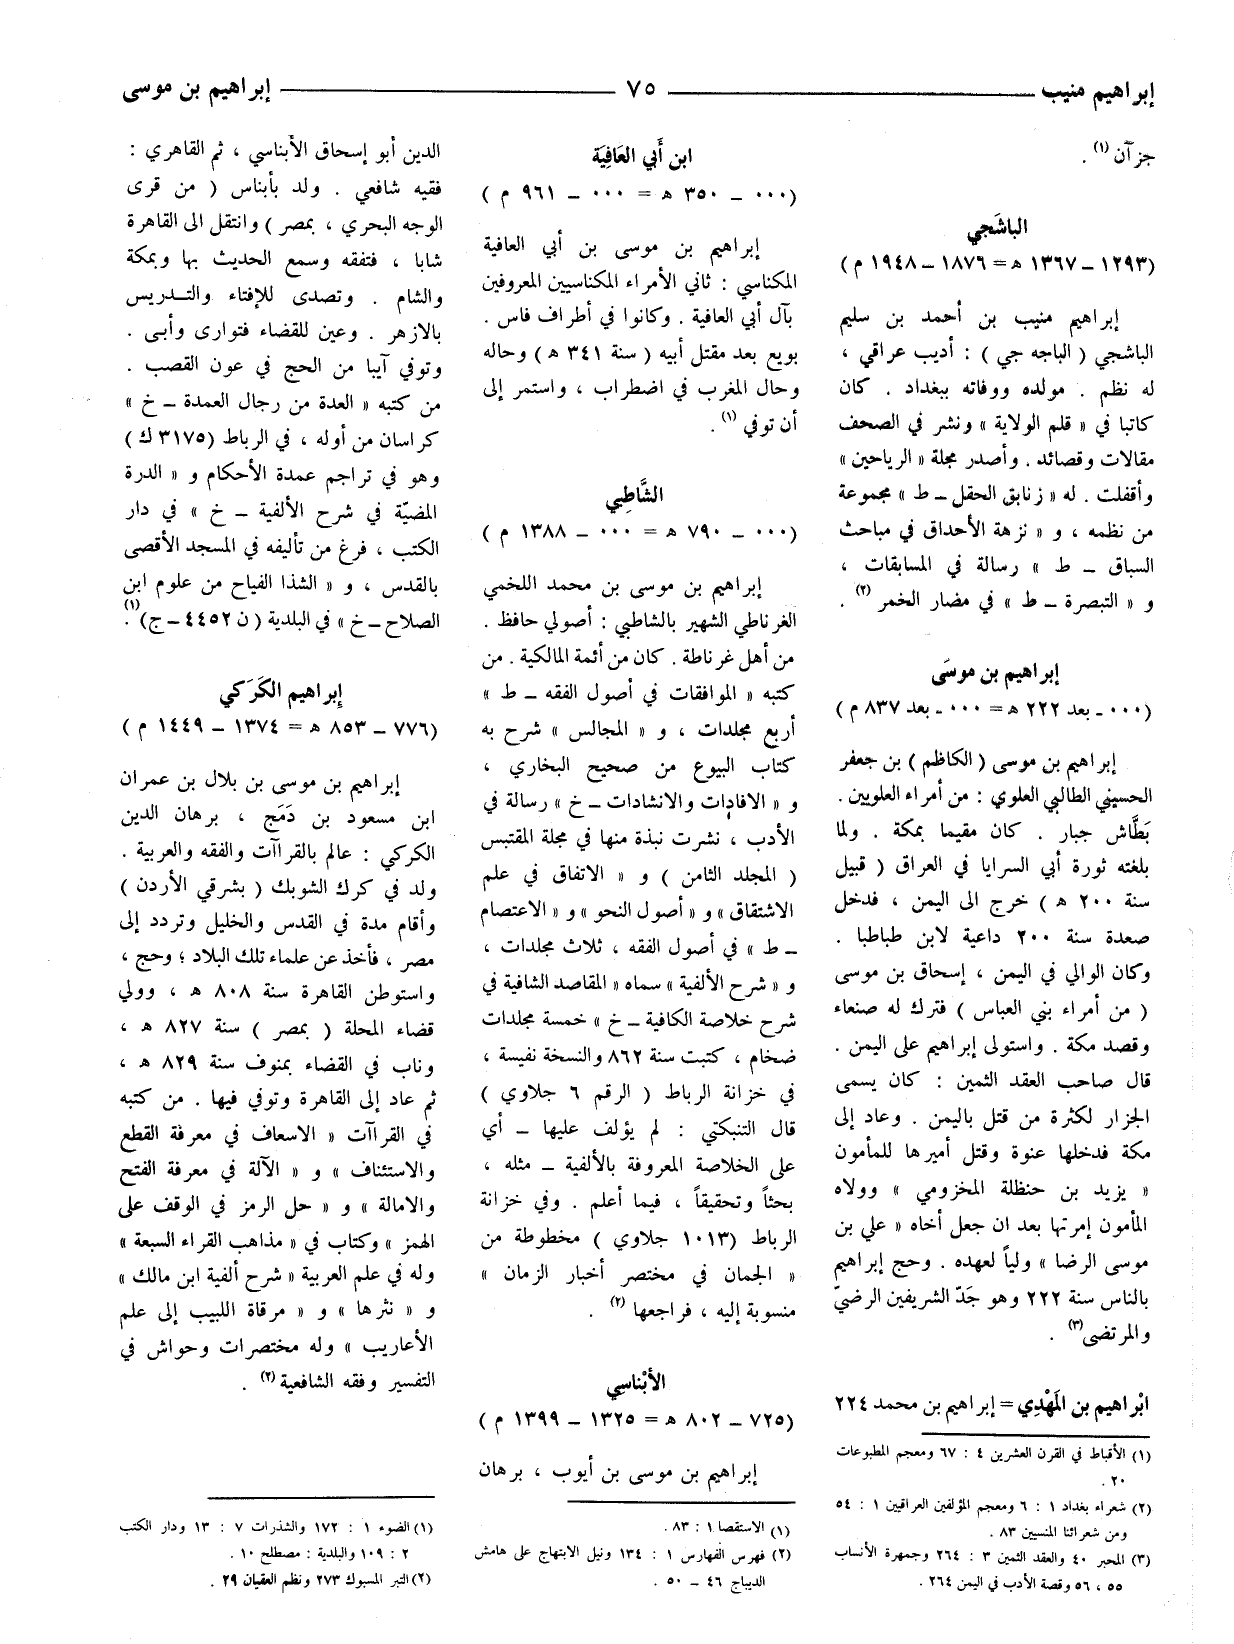 إبراهيم منيب ٧٥ إبراهيم بن موسى
جزآن (١) .
الباشَجي
(١٢٩٣ – ١٣٦٧ ه = ١٨٧٦ – ١٩٤٨ م)
إبراهيم منيب بن أحمد بن سليم
الباشجي ( الباجه جي ) : أديب عراقي ،
له نظم . مولده ووفاته ببغداد . كان
كاتبا في « قلم الولاية » ونشر في الصحف
مقالات وقصائد . وأصدر مجلة « الرياحين »
وأقفلت . له « زنابق الحقل – ط » مجموعة
من نظمه ، و « نزهة الأحداق في مباحث
السباق – ط » رسالة في المسابقات ،
و « التبصرة – ط » في مضار الخمر (٢) .
إبراهيم بن موسَى
(٠٠٠ - بعد ٢٢٢ ه = ٠٠٠ - بعد ٨٣٧ م)
إبراهيم بن موسى ( الكاظم ) بن جعفر
الحسيني الطالبي العلوي : من أمراء العلويين .
بَطَّاش جبار . كان مقيما بمكة . ولما
بلغته ثورة أبي السرايا في العراق ( قبيل
سنة ٢٠٠ ه ) خرج الى اليمن ، فدخل
صعدة سنة ٢٠٠ داعية لابن طباطبا .
وكان الوالي في اليمن ، إسحاق بن موسى
( من أمراء بني العباس ) فترك له صنعاء
وقصد مكة . واستولى إبراهيم على اليمن .
قال صاحب العقد الثمين : كان يسمى
الجزار لكثرة من قتل باليمن . وعاد إلى
مكة فدخلها عنوة وقتل أميرها للمأمون
« يزيد بن حنظلة المخزومي » وولاه
المأمون إمرتها بعد ان جعل أخاه « علي بن
موسى الرضا » ولياً لعهده . وحج إبراهيم
بالناس سنة ٢٢٢ وهو جَدّ الشريفين الرضيّ
والمرتضى(٣) .
ابْراهيم بن المَهْدِي = إبراهيم بن محمد ٢٢٤
(١) الأقباط في القرن العشرين ٤ : ٦٧ ومعجم المطبوعات
٢٠ .
(٢) شعراء بغداد ١ : ٦ ومعجم المؤلفين العراقيين ١ : ٥٤
ومن شعرائنا المنسيين ٨٣ .
(٣) المحبر ٤٠ والعقد الثمين ٣ : ٢٦٤ وجمهرة الأنساب
٥٥ ، ٥٦ وقصة الأدب في اليمن ٢٦٤ .
ابن أَبي العَافِيَة
(٠٠٠ – ٣٥٠ ه = ٠٠٠ – ٩٦١ م )
إبراهيم بن موسى بن أبي العافية
المكناسي : ثاني الأمراء المكناسيين المعروفين
بآل أبي العافية . وكانوا في أطراف فاس .
بويع بعد مقتل أبيه ( سنة ٣٤١ ه ) وحاله
وحال المغرب في اضطراب ، واستمر إلى
أن توفي (١) .
الشَّاطِبي
(٠٠٠ – ٧٩٠ ه = ٠٠٠ – ١٣٨٨ م )
إبراهيم بن موسى بن محمد اللخمي
الغرناطي الشهير بالشاطبي : أصولي حافظ .
من أهل غرناطة . كان من أئمة المالكية . من
كتبه « الموافقات في أصول الفقه – ط »
أربع مجلدات ، و « المجالس » شرح به
كتاب البيوع من صحيح البخاري ،
و « الافادات والانشادات – خ » رسالة في
الأدب ، نشرت نبذة منها في مجلة المقتبس
( المجلد الثامن ) و « الاتفاق في علم
الاشتقاق » و « أصول النحو » و « الاعتصام
– ط » في أصول الفقه ، ثلاث مجلدات ،
و « شرح الألفية » سماه « المقاصد الشافية في
شرح خلاصة الكافية – خ » خمسة مجلدات
ضخام ، كتبت سنة ٨٦٢ والنسخة نفيسة ،
في خزانة الرباط ( الرقم ٦ جلاوي )
قال التنبكتي : لم يؤلف عليها – أي
على الخلاصة المعروفة بالألفية – مثله ،
بحثاً وتحقيقاً ، فيما أعلم . وفي خزانة
الرباط (١٠١٣ جلاوي ) مخطوطة من
« الجمان في مختصر أخبار الزمان »
منسوبة إليه ، فراجعها (٢) .
الأبْناسِي
(٧٢٥ – ٨٠٢ ه = ١٣٢٥ – ١٣٩٩ م )
إبراهيم بن موسى بن أيوب ، برهان
(١) الاستقصا ١ : ٨٣ .
(٢) فهرس الفهارس ١ : ١٣٤ ونيل الابتهاج على هامش
الديباج ٤٦ – ٥٠ .
الدين أبو إسحاق الأبناسي ، ثم القاهري :
فقيه شافعي . ولد بأبناس ( من قرى
الوجه البحري ، بمصر ) وانتقل الى القاهرة
شابا ، فتفقه وسمع الحديث بها وبمكة
والشام . وتصدى للإفتاء والتدريس
بالازهر . وعين للقضاء فتوارى وأبى .
وتوفي آيبا من الحج في عون القصب .
من كتبه « العدة من رجال العمدة – خ »
كراسان من أوله ، في الرباط (٣١٧٥ ك )
وهو في تراجم عمدة الأحكام و « الدرة
المضيّة في شرح الألفية – خ » في دار
الكتب ، فرغ من تأليفه في المسجد الأقصى
بالقدس ، و « الشذا الفياح من علوم ابن
الصلاح – خ » في البلدية ( ن ٤٤٥٢ – ج) (١).
إبراهيم الكَرَكي
(٧٧٦ – ٨٥٣ ه = ١٣٧٤ – ١٤٤٩ م )
إبراهيم بن موسى بن بلال بن عمران
ابن مسعود بن دَمَج ، برهان الدين
الكركي : عالم بالقراآت والفقه والعربية .
ولد في كرك الشوبك ( بشرقي الأردن )
وأقام مدة في القدس والخليل وتردد إلى
مصر ، فأخذ عن علماء تلك البلاد ؛ وحج ،
واستوطن القاهرة سنة ٨٠٨ ه ، وولي
قضاء المحلة ( بمصر ) سنة ٨٢٧ ه ،
وناب في القضاء بمنوف سنة ٨٢٩ ه ،
ثم عاد إلى القاهرة وتوفي فيها . من كتبه
في القراآت « الاسعاف في معرفة القطع
والاستئناف » و « الآلة في معرفة الفتح
والامالة » و « حل الرمز في الوقف على
الهمز » وكتاب في « مذاهب القراء السبعة »
وله في علم العربية « شرح ألفية ابن مالك »
و « نثرها » و « مرقاة اللبيب إلى علم
الأعاريب » وله مختصرات وحواش في
التفسير وفقه الشافعية (٢) .
(١) الضوء ١ : ١٧٢ والشذرات ٧ : ١٣ ودار الكتب
٢ : ١٠٩ والبلدية : مصطلح ١٠ .
(٢) التبر المسبوك ٢٧٣ ونظم العقيان ٢٩ .